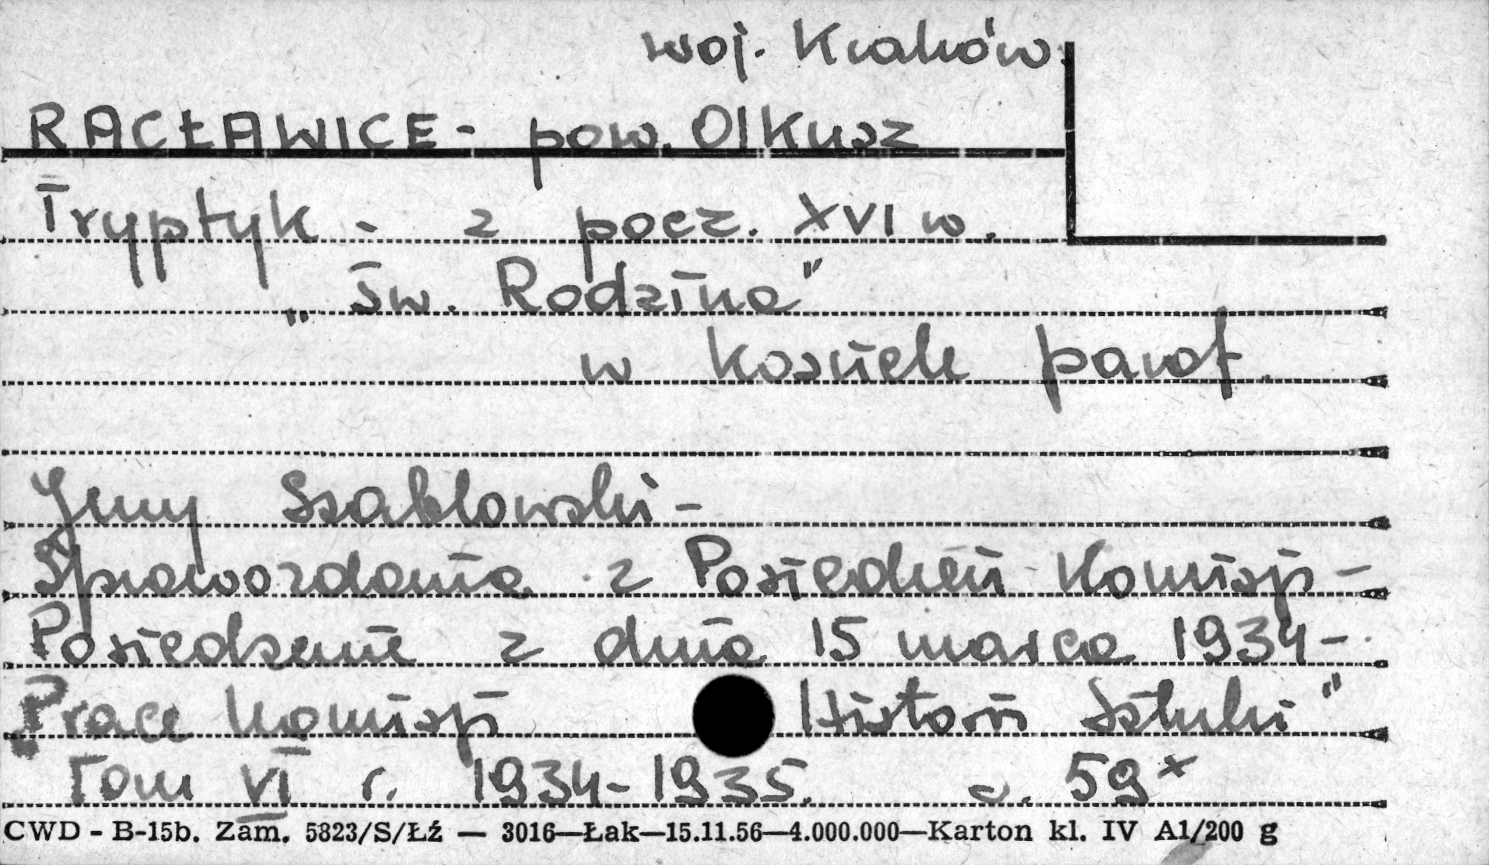 woj. Kraków.
RACŁAWICE - pow. Olkusz
Tryptyk - z pocz. XVI w.
„Św. Rodzina"
w kościele paraf.
Jerzy Szabłowski -
Sprawozdania z Posiedzeń Komisji -
Posiedzenie z dnia 15 marca 1934 -
„Prace Komisji Historii Sztuki"
Tom VI r. 1934-1935. s. 59*
CWD - B-15b. Zam. 5823/S/Łź — 3016—Łak—15.11.56—4.000.000—Karton kl. IV A1/200 g